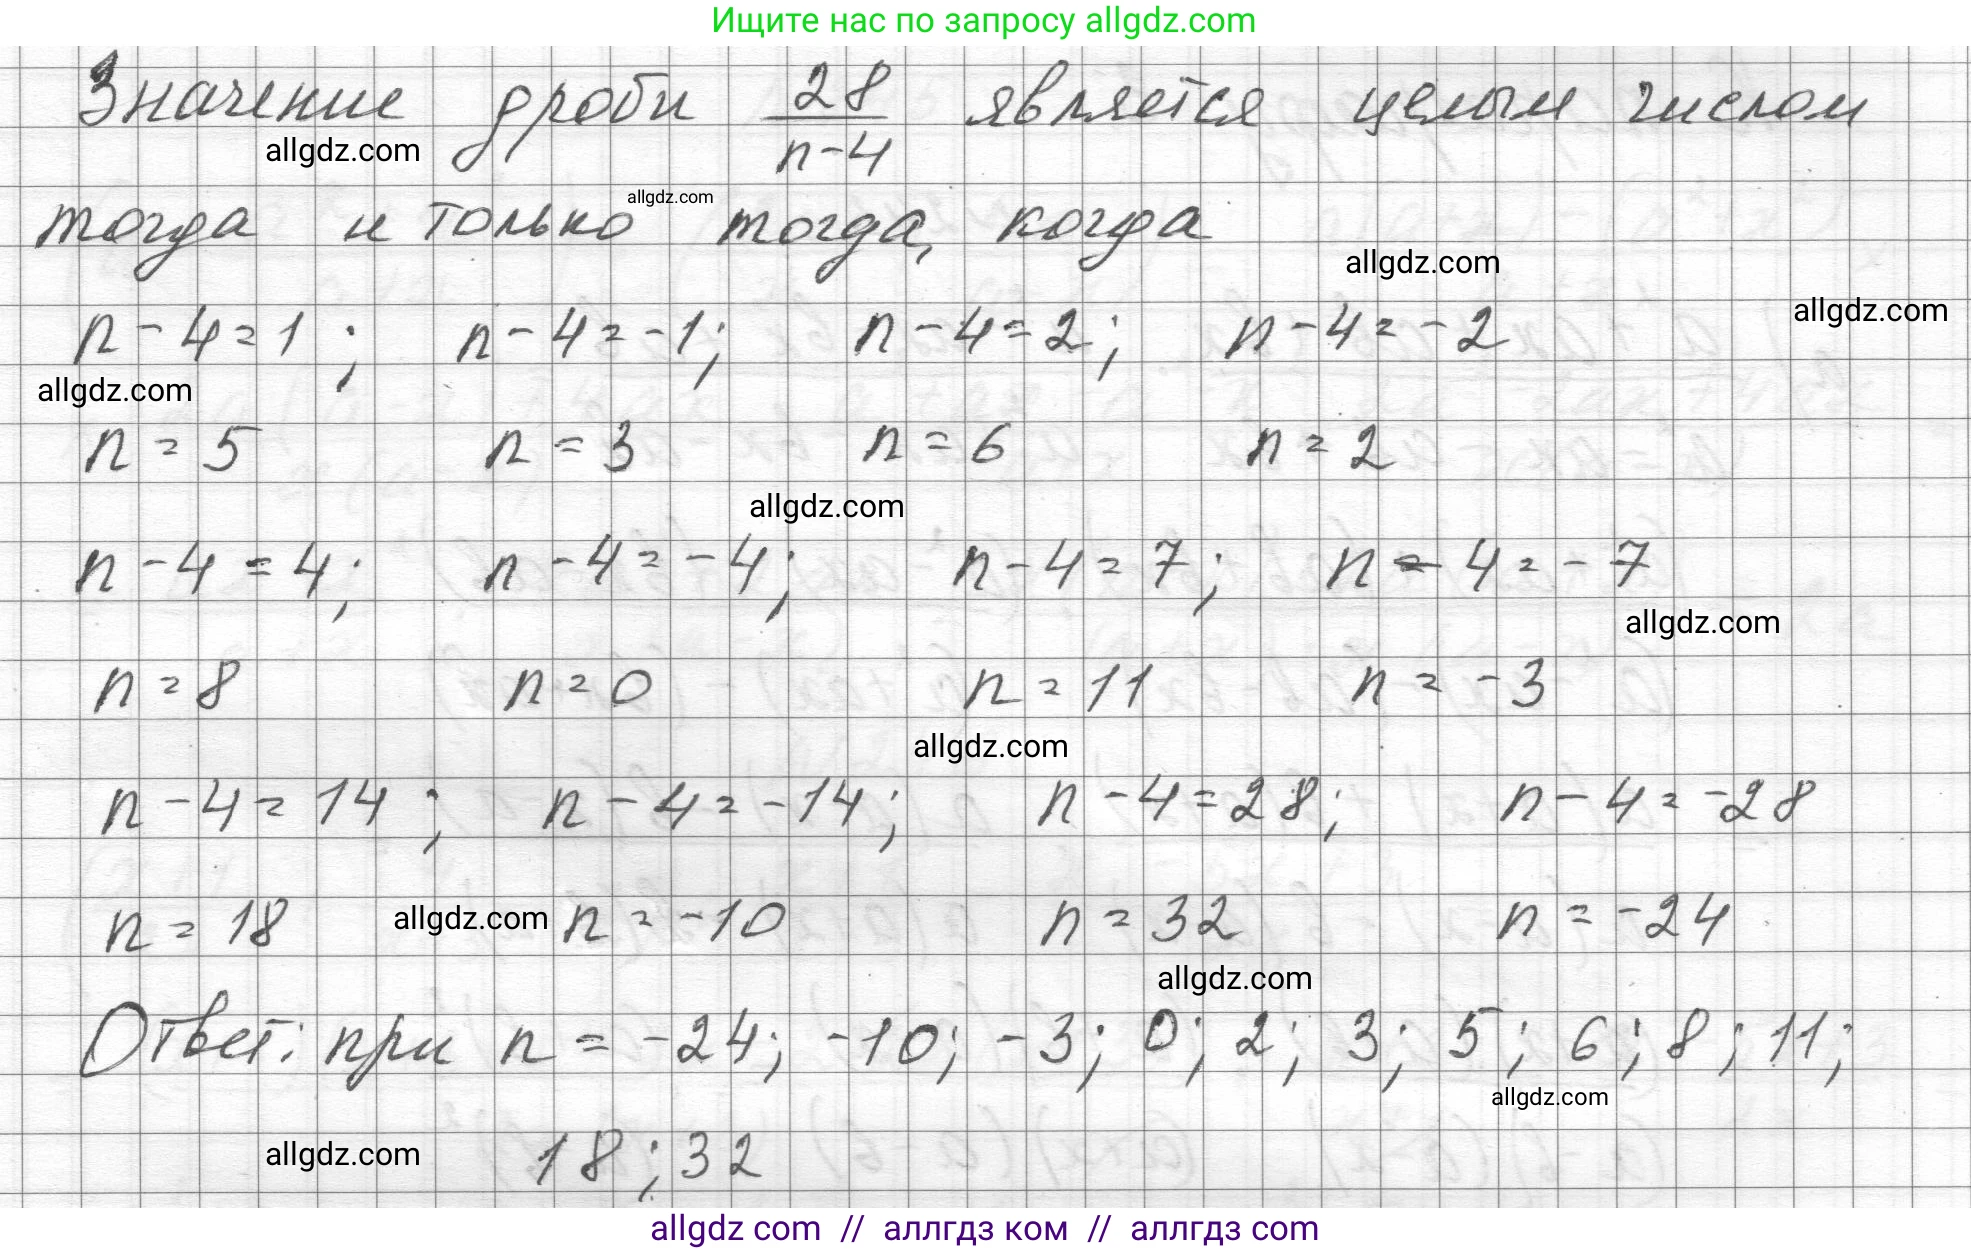 Ищите нас по запросу allgdz.com
Значение дроби 28/(n-4) является целым числом
allgdz.com
allgdz.com
тогда и только тогда, когда
allgdz.com
allgdz.com
n - 4 = 1; n - 4 = -1; n - 4 = 2; n - 4 = -2
allgdz.com
n = 5 n = 3 n = 6 n = 2
allgdz.com
n - 4 = 4; n - 4 = -4; n - 4 = 7; n - 4 = -7
allgdz.com
n = 8 n = 0 n = 11 n = -3
allgdz.com
n - 4 = 14; n - 4 = -14; n - 4 = 28; n - 4 = -28
n = 18 allgdz.com n = -10 n = 32 n = -24
allgdz.com
Ответ: при n = -24; -10; -3; 0; 2; 3; 5; 6; 8; 11;
allgdz.com
allgdz.com 18; 32
allgdz com // аллгдз ком // аллгдз com